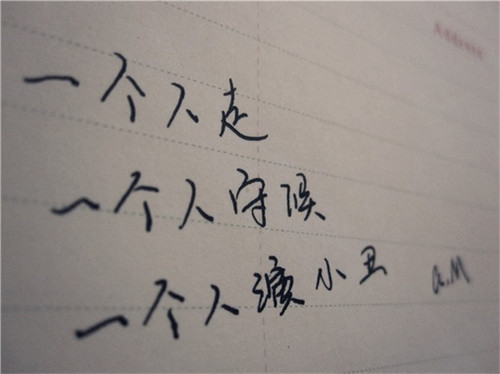 Address
一个人走
一个人守候
一个人演小丑
a.M